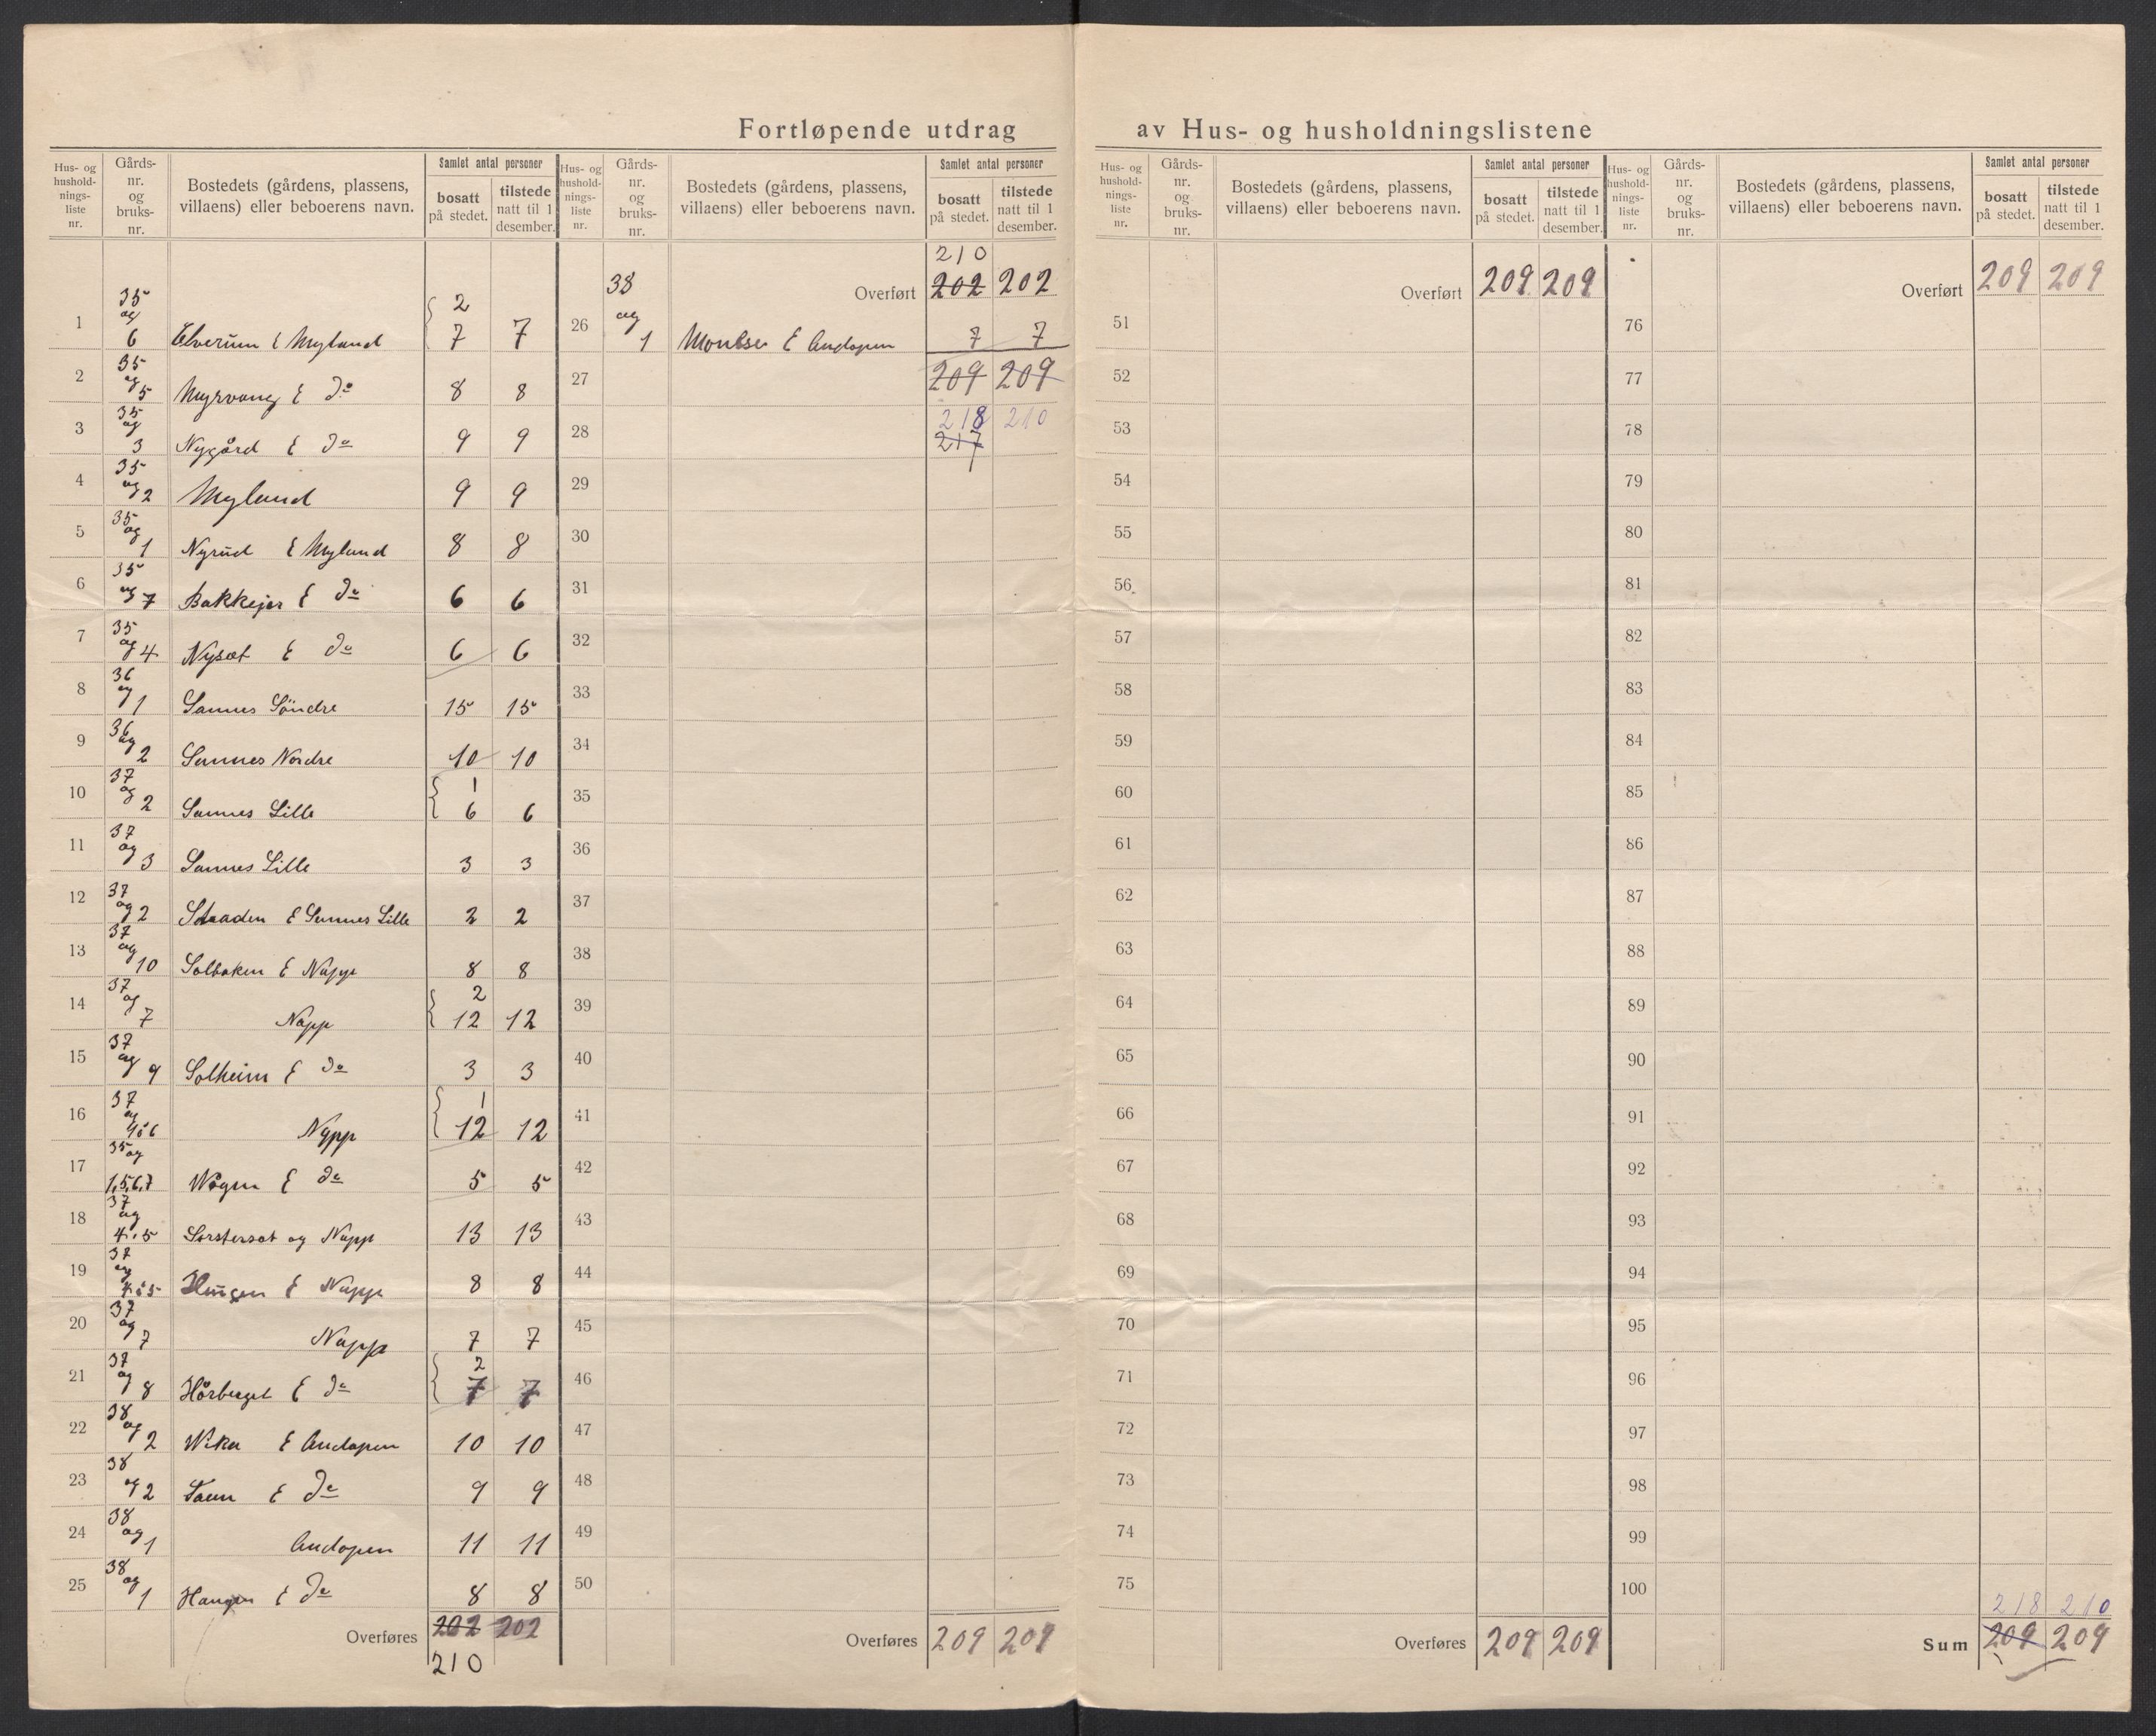 Fortløpende utdrag av Hus- og husholdningslistene
Hus- og husholdningsliste nr. Gårds-nr. og bruks-nr. Bostedets (gårdens, plassens, villaens) eller beboerens navn. Samlet antal personer bosatt på stedet. tilstede natt til 1 desember.
Hus- og husholdningsliste nr. Gårds-nr. og bruks-nr. Bostedets (gårdens, plassens, villaens) eller beboerens navn. Samlet antal personer bosatt på stedet. tilstede natt til 1 desember.
Hus- og husholdningsliste nr. Gårds-nr. og bruks-nr. Bostedets (gårdens, plassens, villaens) eller beboerens navn. Samlet antal personer bosatt på stedet. tilstede natt til 1 desember.
Hus- og husholdningsliste nr. Gårds-nr. og bruks-nr. Bostedets (gårdens, plassens, villaens) eller beboerens navn. Samlet antal personer bosatt på stedet. tilstede natt til 1 desember.
1 35 og 6 Elverum E Myland 2 7 7
2 35 og 5 Myrvang E do 8 8
3 35 og 3 Nygård E do 9 9
4 35 og 2 Myland 9 9
5 35 og 1 Nyrud E Myland 8 8
6 35 og 7 Bakkejor E do 6 6
7 35 og 4 Nysæt E do 6 6
8 36 og 1 Sannes Söndre 15 15
9 36 og 2 Sannes Nordre 10 10
10 37 og 2 Sannes Lille 1 6 6
11 37 og 3 Sannes Lille 3 3
12 37 og 2 Straaden E Sannes Lille 2 2
13 37 og 10 Solbaken E Napp 8 8
14 37 og 7 Napp 2 12 12
15 37 og 9 Solheim E do 3 3
16 37 og Napp 1 12 12
17 35 og 1,5,6,7 Wågen E do 5 5
18 37 og 4.5 og Napp 13 13
19 37 og 4.5 Haugen E Napp 8 8
20 37 og 7 Napp 7 7
21 37 og 8 Hårberget E do 2 7 7
22 38 og 2 Wika E Andopen 10 10
23 38 og 2 E do 9 9
24 38 og 1 Andopen 11 11
25 38 og 1 Haugen E do 8 8
Overføres 202 202
210
210
Overført 202 202
26 38 og 1 E Andopen 7 7
27 209 209
28 218 210
217
29
30
31
32
33
34
35
36
37
38
39
40
41
42
43
44
45
46
47
48
49
50
Overføres 209 209
Overført 209 209
51
52
53
54
55
56
57
58
59
60
61
62
63
64
65
66
67
68
69
70
71
72
73
74
75
Overføres 209 209
Overført 209 209
76
77
78
79
80
81
82
83
84
85
86
87
88
89
90
91
92
93
94
95
96
97
98
99
100
218 210
Sum 209 209